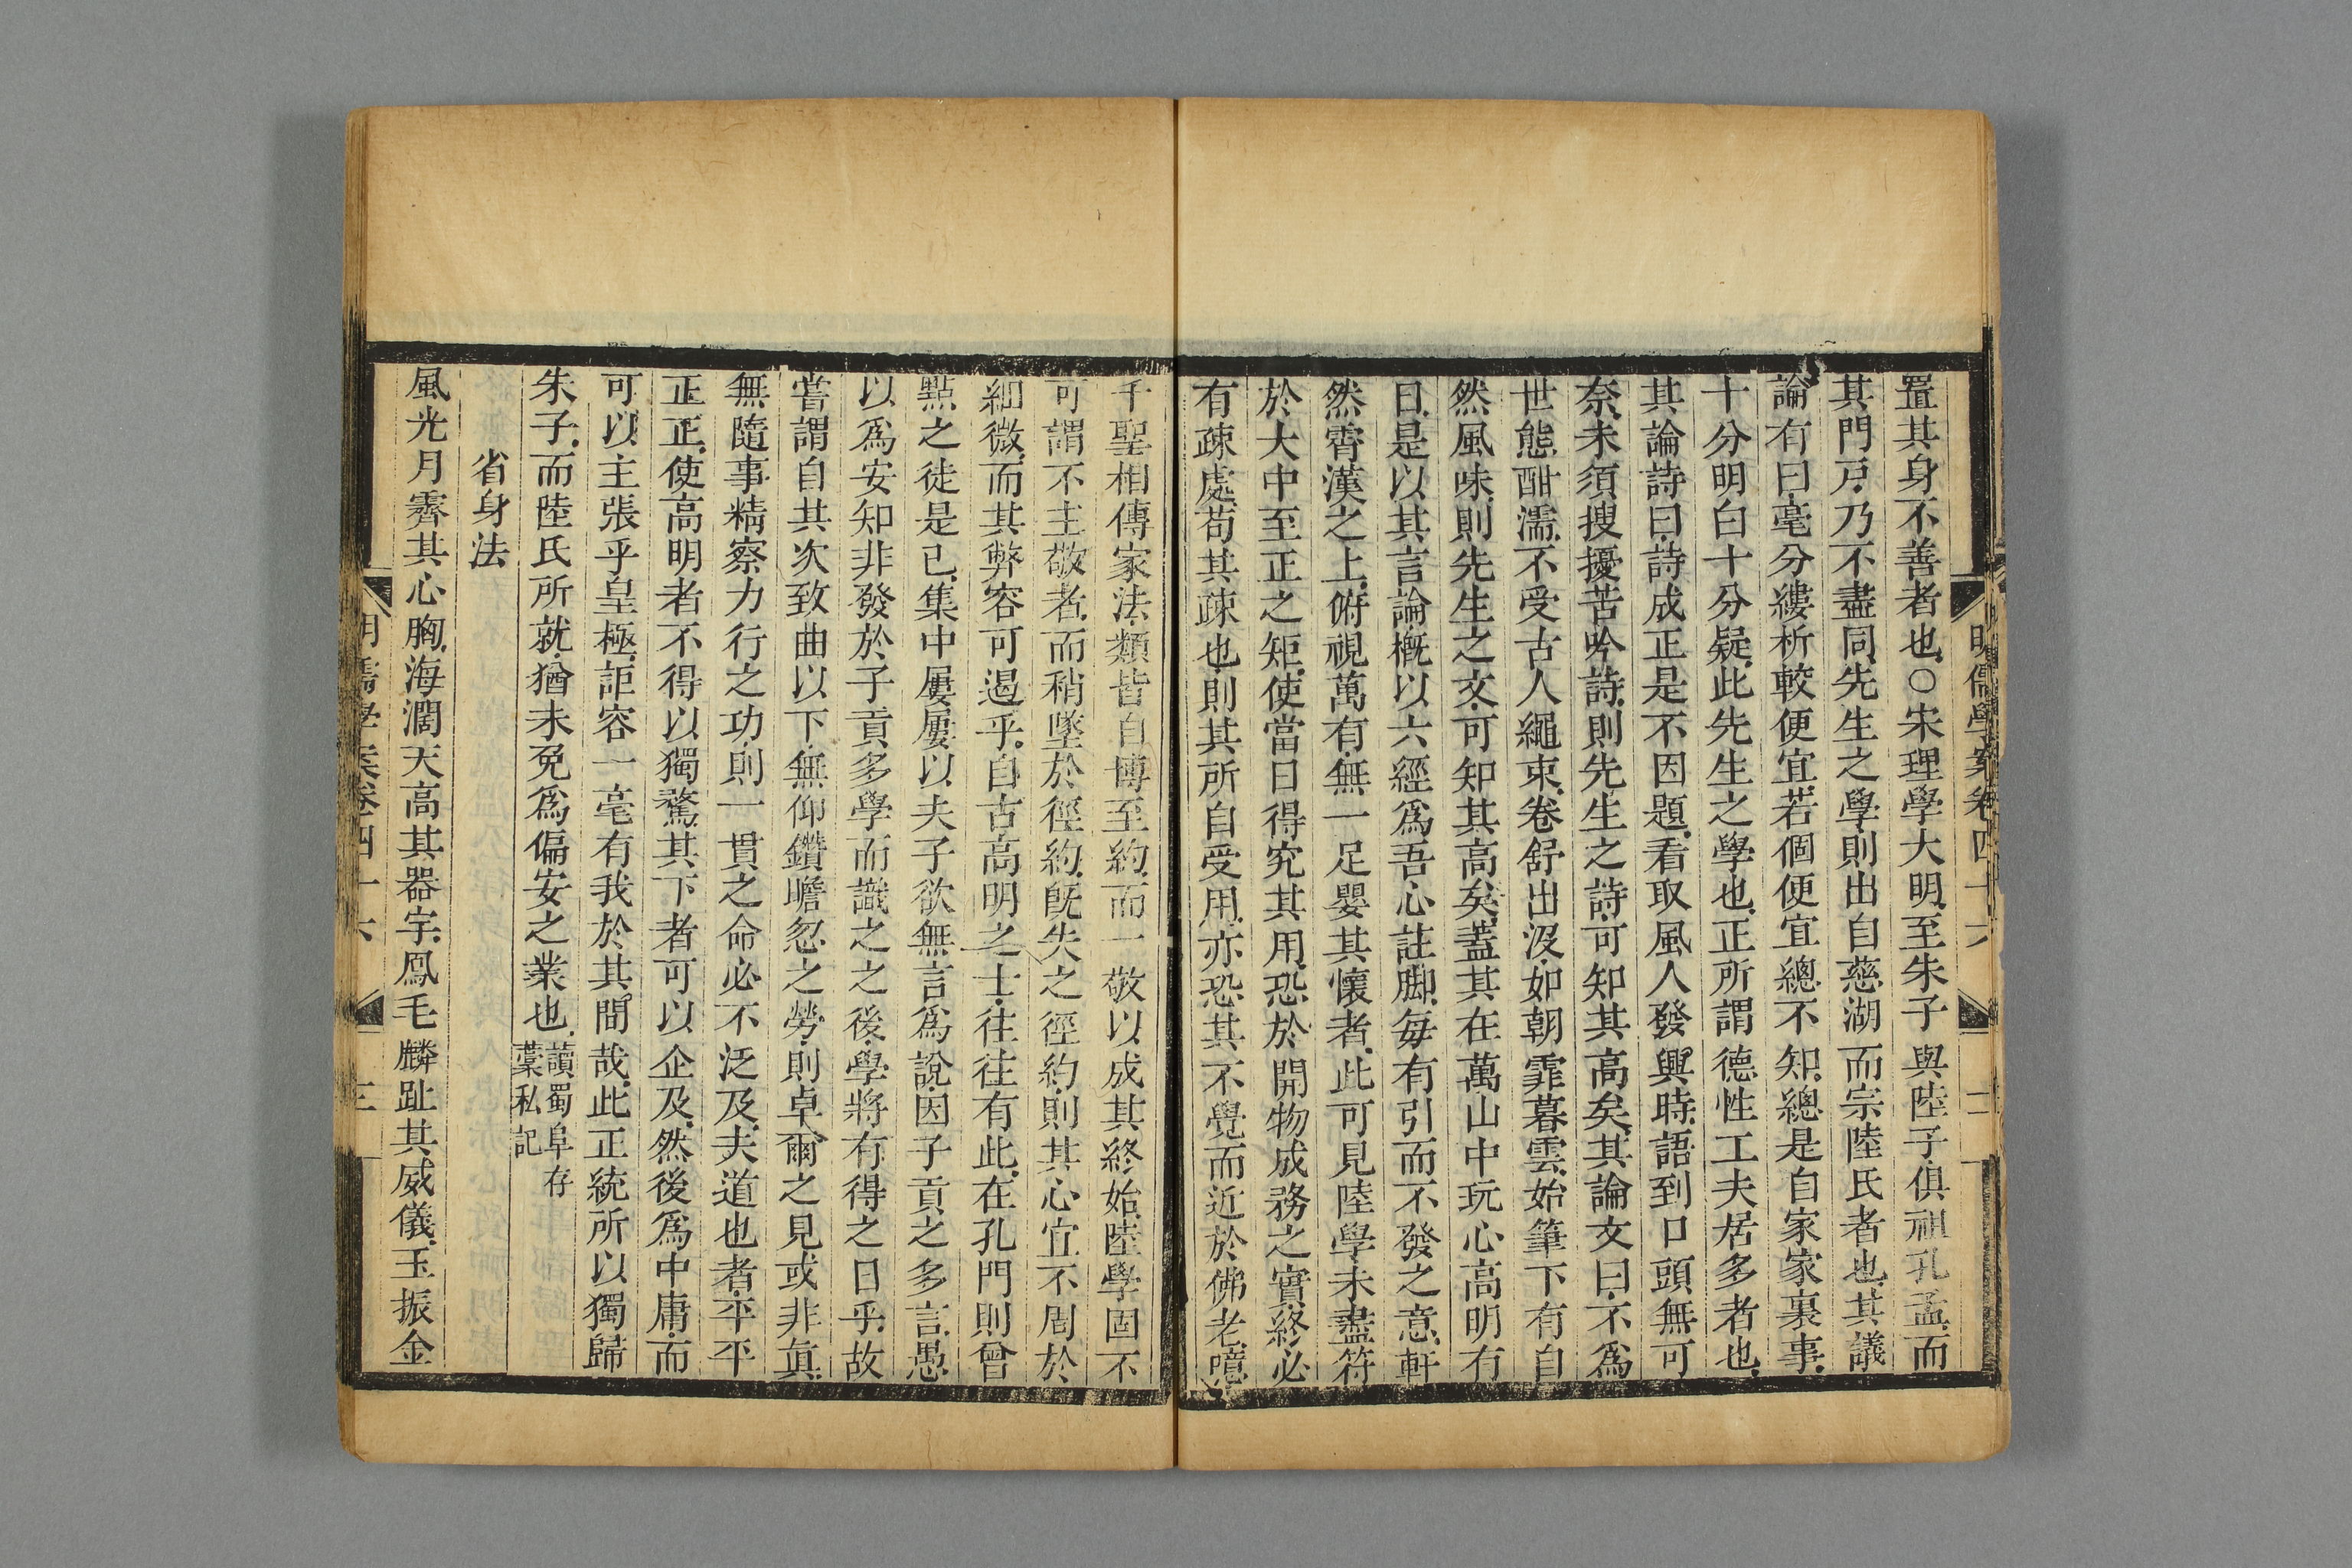 明儒學案卷四十六
二
置其身不善者也○宋理學大明至朱子與陸子俱祖孔孟而
其門戸乃不盡同先生之學則出自慈湖而宗陸氏者也其議
論有曰毫分縷析較便宜若個便宜總不知總是自家家裏事
十分明白十分疑此先生之學也正所謂德性工夫居多者也
其論詩曰詩成正是不因題看取風人發興時語到口頭無可
奈未須搜擾苦吟詩則先生之詩可知其高矣其論文曰不爲
世態酣濡不受古人繩束卷舒出沒如朝霏暮雲始筆下有自
然風味則先生之文可知其高矣蓋其在萬山中玩心高明有
日是以其言論槪以六經爲吾心註脚每有引而不發之意軒
然霄漢之上俯視萬有無一足嬰其懷者此可見陸學未盡符
於大中至正之矩使當日得究其用恐於開物成務之實終必
有疎處苟其疎也則其所自受用亦恐其不覺而近於佛老噫
千聖相傳家法類皆自博至約而一敬以成其終始陸學固不
可謂不主敬者而稍墜於徑約旣失之徑約則其心宜不周於
細微而其弊容可遏乎自古高明之士往往有此在孔門則曾
點之徒是已集中屢屢以夫子欲無言爲說因子貢之多言愚
以爲安知非發於子貢多學而識之之後學將有得之日乎故
嘗謂自其次致曲以下無仰鑽瞻忽之勞則卓爾之見或非眞
無隨事精察力行之功則一貫之命必不泛及夫道也者平平
正正使高明者不得以獨騖其下者可以企及然後爲中庸而
可以主張乎皇極詎容一毫有我於其間哉此正統所以獨歸
朱子而陸氏所就猶未免爲偏安之業也讀蜀阜存
藁私記
省身法
風光月霽其心胸海濶天高其器宇鳳毛麟趾其威儀玉振金
明儒學案卷四十六
三